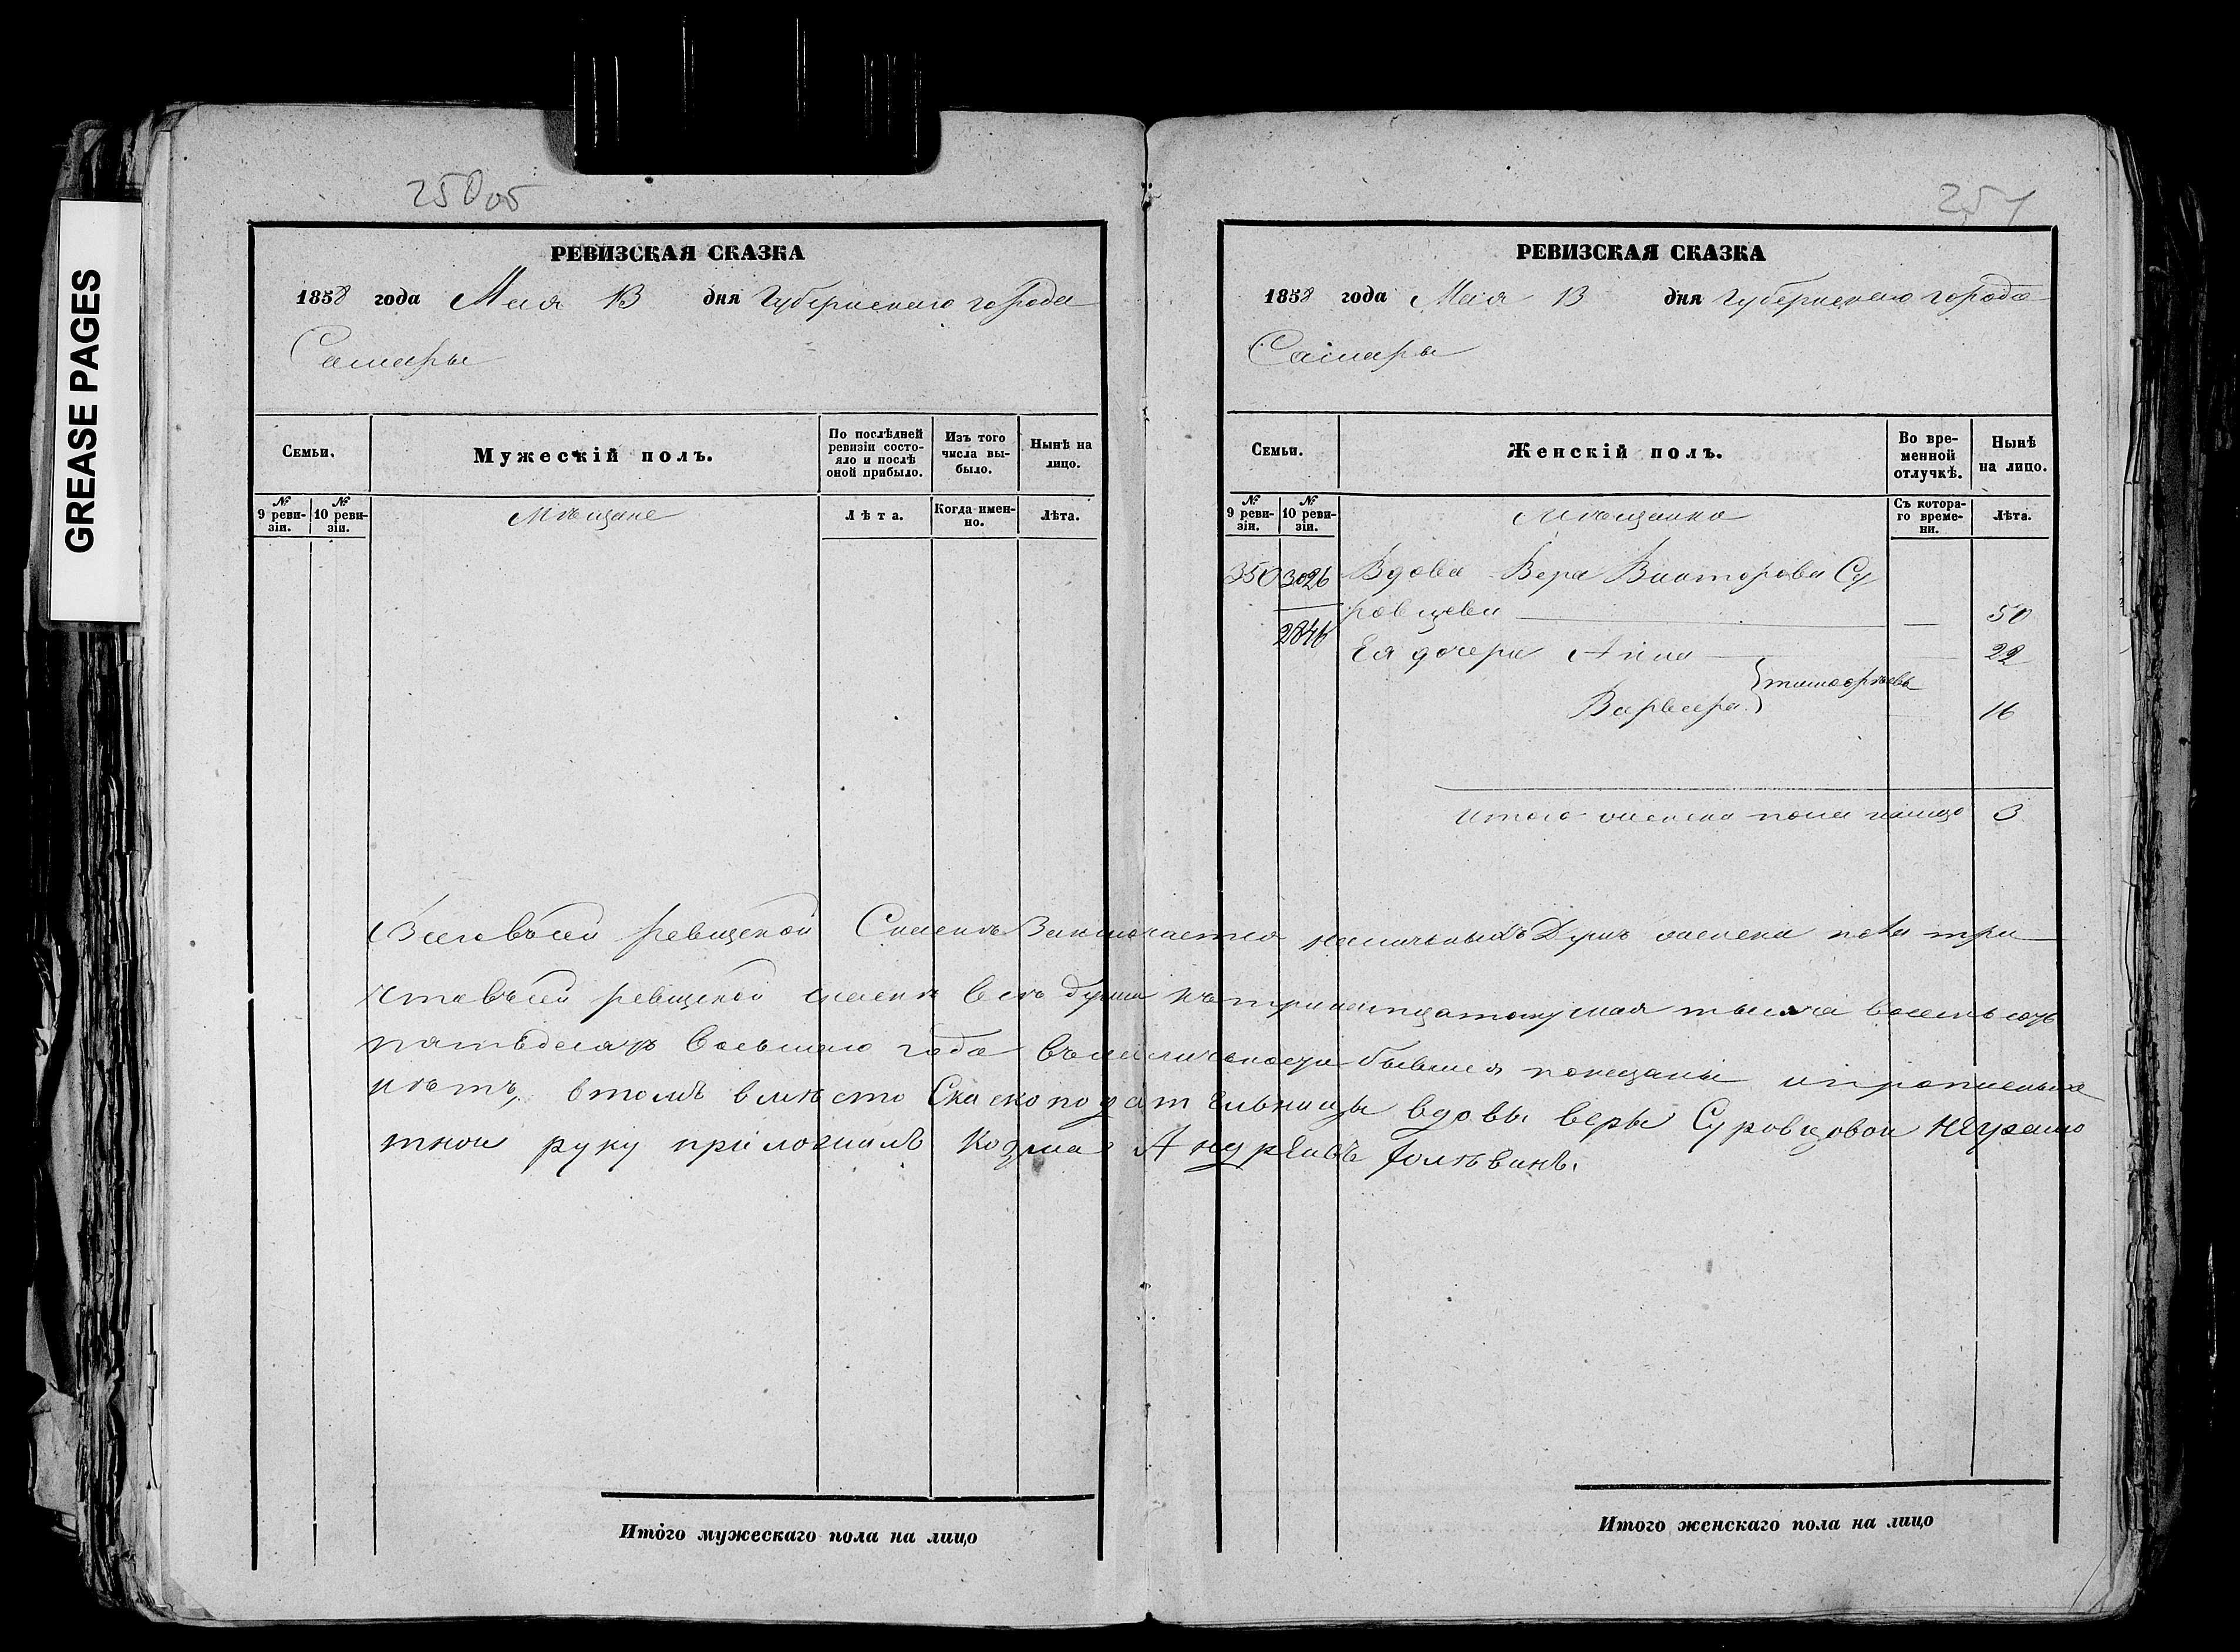 GREASE PAGES
250 об
РЕВИЗСКАЯ СКАЗКА
1858 года Мая 13 дня Губернскаго города
Самары
Семьи.
Мужескій полъ.
По послѣдней ревизіи состо-
яло и послѣ оной прибыло.
Изъ того числа вы-
было.
Нынѣ на лицо.
№ 9 реви-
зіи.
№ 10 реви-
зіи.
Мѣщане
Лѣта.
Когда имен-
но.
Лѣта.
251
РЕВИЗСКАЯ СКАЗКА
1858 года Мая 13 дня Губернскаго города
Самары
Семьи.
Женскій полъ.
Во вре-
менной отлучкѣ.
Нынѣ на лицо.
№ 9 реви-
зіи.
№ 10 реви-
зіи.
Мѣщанка
Съ котора-
го време-
ни.
Лѣта.
350 3026 Вдова Вера Викторова Су
ровцева 50
2846
Ея дочери Анна 22
Тимофѣевы
Варвара 16
Итого женска пола налицо 3
Всего въ сей ревиской Сказкѣ Заключается наличныхъ Душъ женска пола три
Что въ сей ревиской сказкѣ всѣ души къ тринадцатому мая тысяча восемьсотъ
пятьдесятъ восьмаго года въ наличности бывшія показаны и прописныхъ
нѣтъ, в томъ вмѣсто Сказкоподательницы вдовы веры Суровцовой неграмо
тной руку приложилъ Козма Андреивъ
Итого мужескаго пола на лицо
Итого женскаго пола на лицо